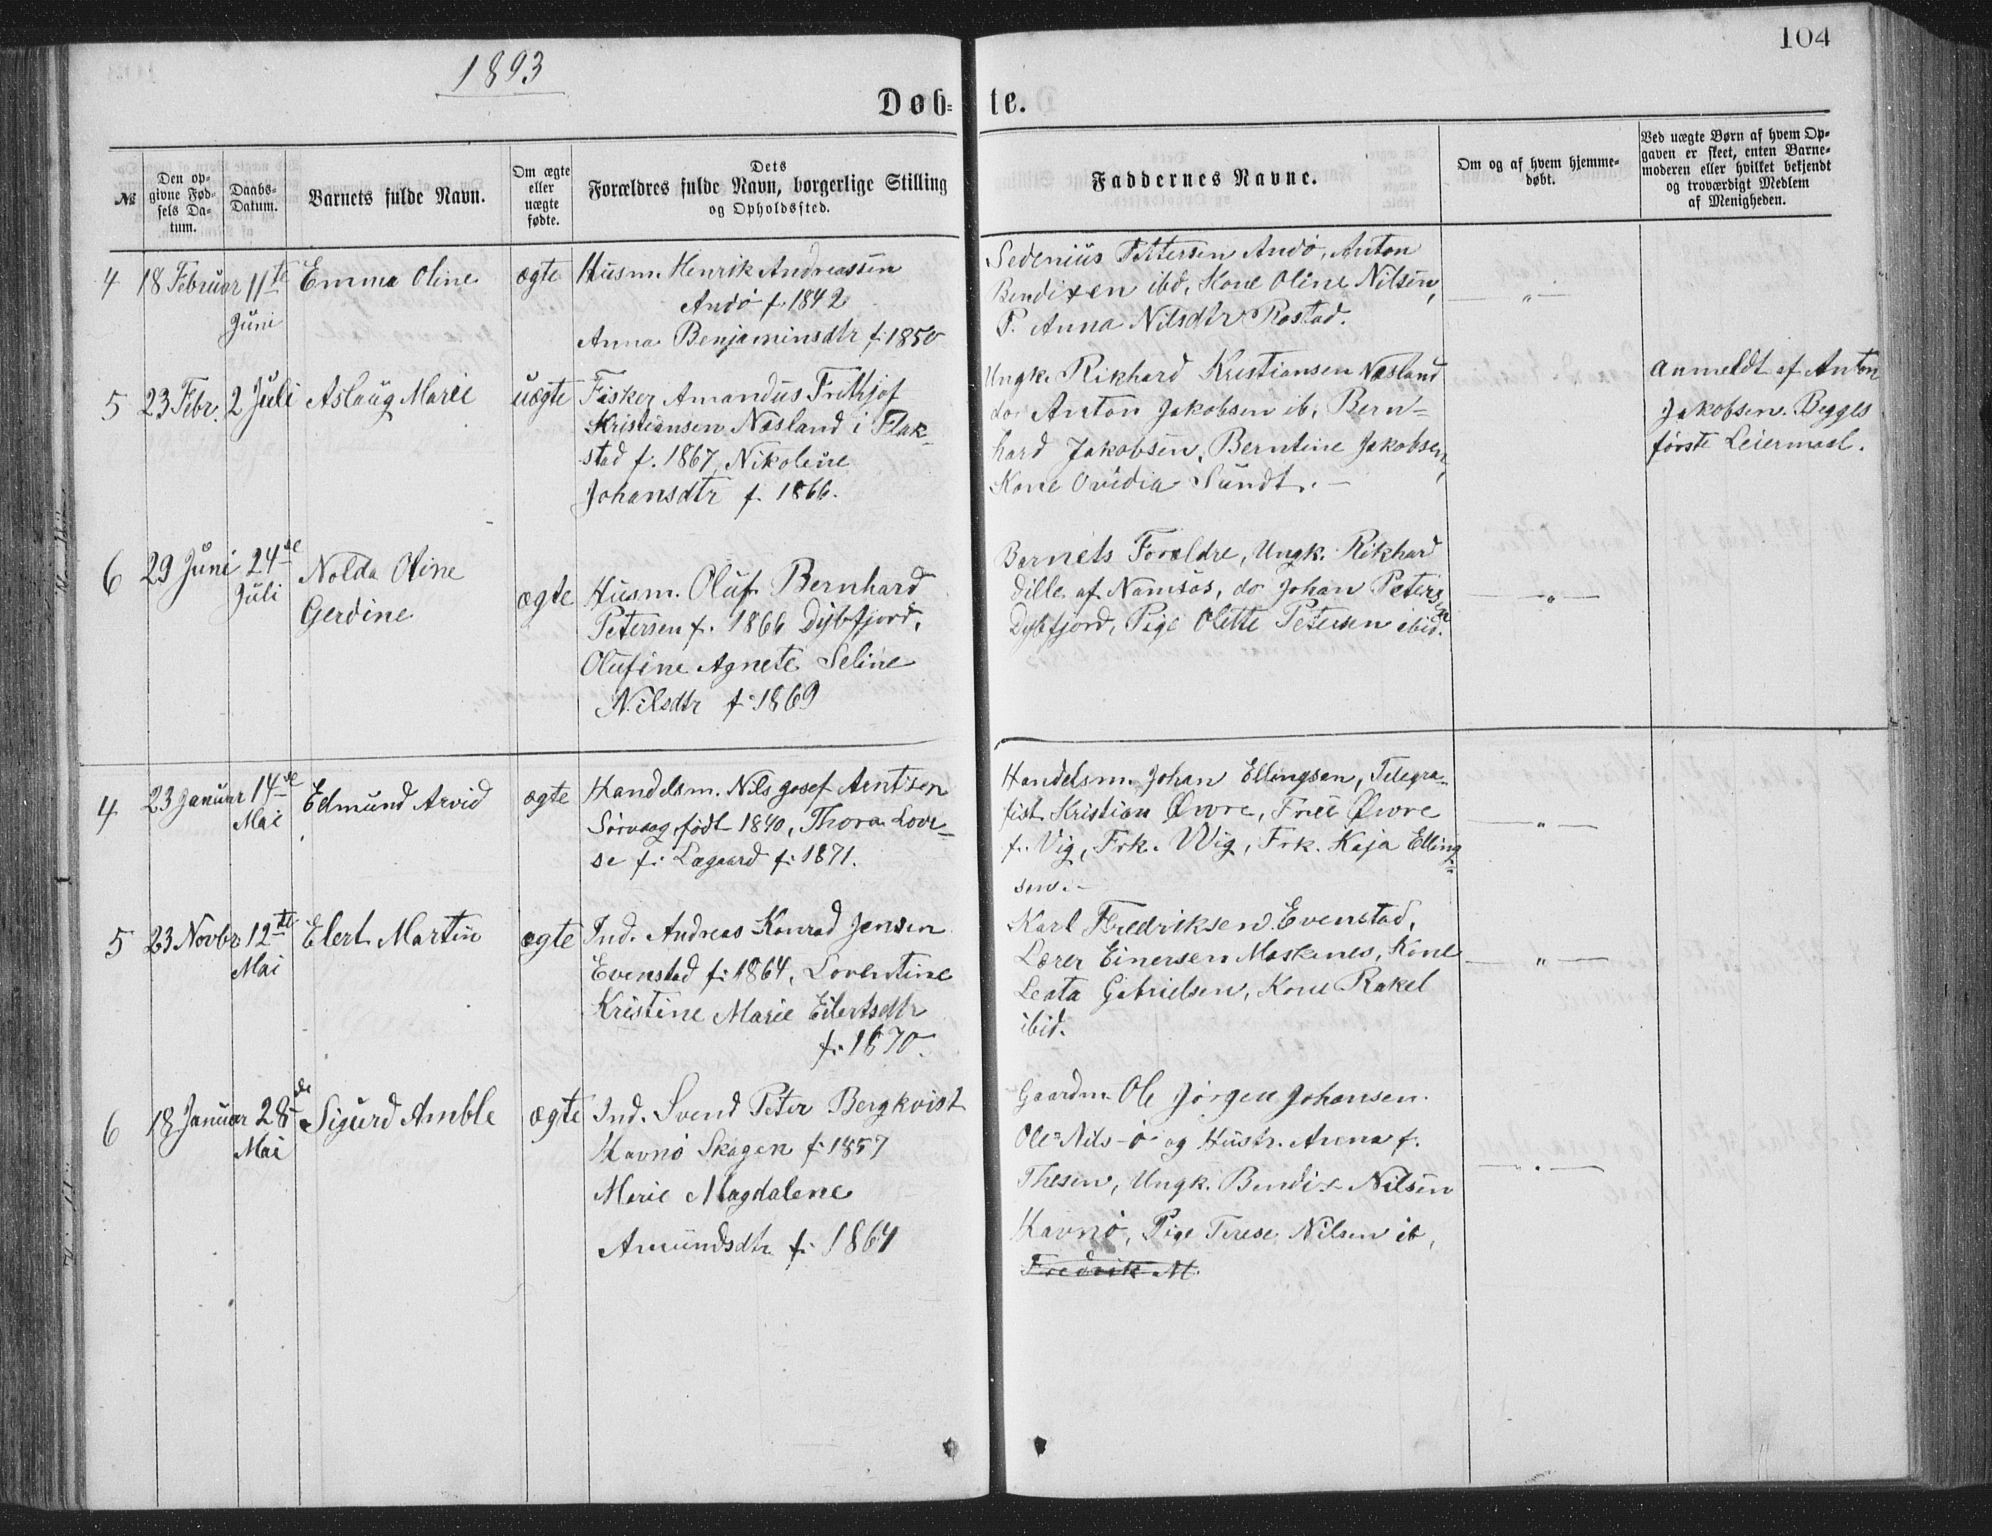 104
1893
Døb- te.
№
Den opgivne Fødsels Datum.
Daabs-Datum.
Barnets fulde Navn.
Om ægte eller uægte fødte.
Dets Forældres fulde Navn, borgerlige Stilling og Opholdssted.
Faddernes Navne.
Om og af hvem hjemmedøbt.
Ved uægte Børn af hvem Opgaven er skeet, enten Barnemoderen eller hvilket bekjendt og troværdigt Medlem af Menigheden.
4 18 Februar 11te Juni Emma Oline ægte
Husm. Henrik Andreassen
Andø f. 1842
Anna Benjaminsdtr f. 1850
Sedenius Pettersen Andø, Anton
Bendixen ibd, Kone Oline Nilsen,
P. Anna Nilsdtr Rostad.
— " —
5 23 Febr. 2 Juli Aslaug Marie uægte
Fisker Amandus Frithjof
Kristiansen Næsland i Flak-
stad f. 1867, Nikoline
Johansdtr f. 1866.
Ungk. Rikhard Kristiansen Næsland
do Anton Jakobsen ib, Bern-
hard Jakobsen, Berntine Jakobsen,
Kone Ovidia Sundt. —
Anmeldt af Anton
Jakobsen. Begges
første Leiermaal.
6 29 Juni 24de Juli Nolda Oline
Gerdine ægte
Husm. Oluf Bernhard
Petersen f. 1866 Dybfjord,
Olufine Agnete Seline
Nilsdtr f. 1869
Barnets Forældre, Ungk. Rikhard
Dille af Namsos, do Johan Petersen
Dybfjord, Pige Olette Petersen ibid.
— " —
4 23 Januar 14de Mai Edmund Arvid ægte
Handelsm. Nils Josef Arntsen
Sørvaag født 1840, Thora Lovi-
se f. Lagaard f. 1871.
Handelsm. Johan Ellingsen, Telegra-
fist Kristian Øwre, Frue Øwre
f. Vig, Frk. Wig, Frk. Kaja Elling-
sen. —
— " —
5 23 Novbr 12te Mai Elert Martin ægte
Ind. Andreas Konrad Jensen
Evenstad f. 1864, Lorentine
Kristine Marie Eilertsdtr
f. 1870.
Karl Fredriksen Evenstad,
Lærer Einersen Moskenes, Kone
Leata Gabrielsen, Kone Rakel
ibid.
— " —
6 18 Januar 28de Mai Sigurd Amble ægte
Ind. Svend Peter Bergkvist
Havnø Skagen f. 1857
Marie Magdalene
Amundsdtr f. 1864
Gaardm. Ole Jörgen Johansen
Ole Nils-ø og Hustr. Anna f.
Thesen, Ungk. Bendix Nilsen
Havnø, Pige Terese Nilsen ib,
Fredrik M.
— " —